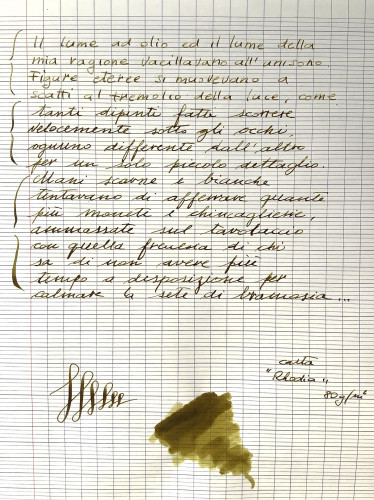 Il lume ad olio ed il lume della
mia ragione vacillavano all'unisono.
Figure eteree si muovevano a
scatti al tremolio della luce, come
tanti dipinti fatti scorrere
velocemente sotto gli occhi,
ognuno differente dall'altro
per un solo piccolo dettaglio.
Mani scarne e bianche
tentavano di afferrare quante
più monete e chincaglierie,
ammassate sul tavolaccio
con quella frenesia di chi
sa di non avere più
tempo a disposizione per
calmare la sete di bramosia...
carta
"Rhodia"
80g/m²